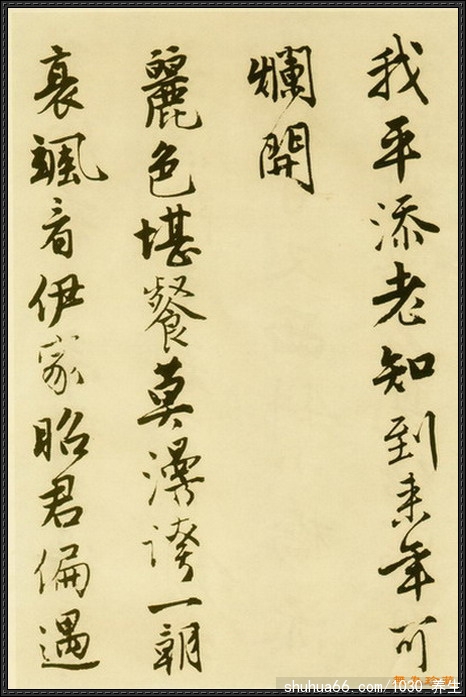 我平添老知到来年可
爛開
麗色堪餐莫漫誇一朝
衰颯看伊家昭君偏遇
shuhua66.com/1030 养生